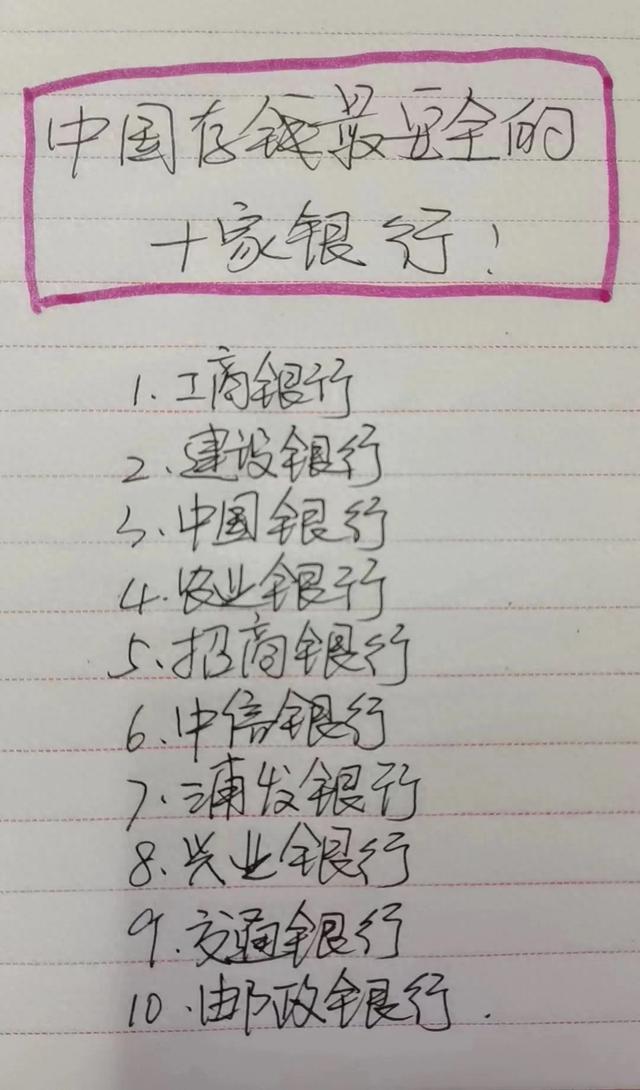 中国存钱最安全的
十家银行！
1.工商银行
2、建设银行
3、中国银行
4.农业银行
5、招商银行
6、中信银行
7.浦发银行
8.兴业银行
9.交通银行
10.邮政银行.